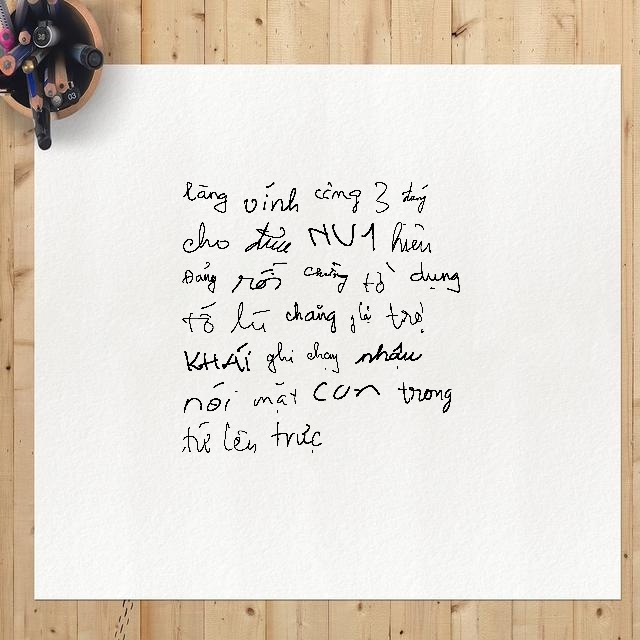 tăng vính công 3 đấy
cho đưa NV1 hiên
Đảng rối chừng tờ dụng
tố lũ chẳng trợ
KHÁI ghi chạy nhậu
nói mặt CUN trong
tứ lên trực